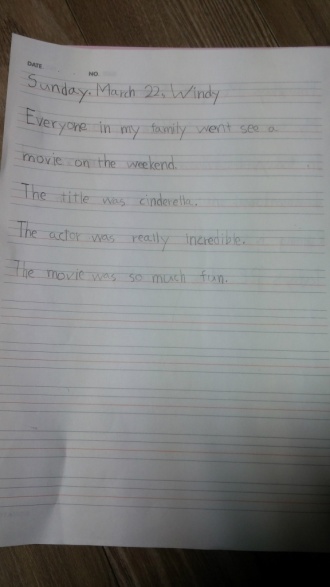 DATE
NO
Sunday. March 22. Windy
Everyone in my family went see a
movie on the weekend.
The title was cinderella.
The actor was really incredible.
The movie was so much fun.